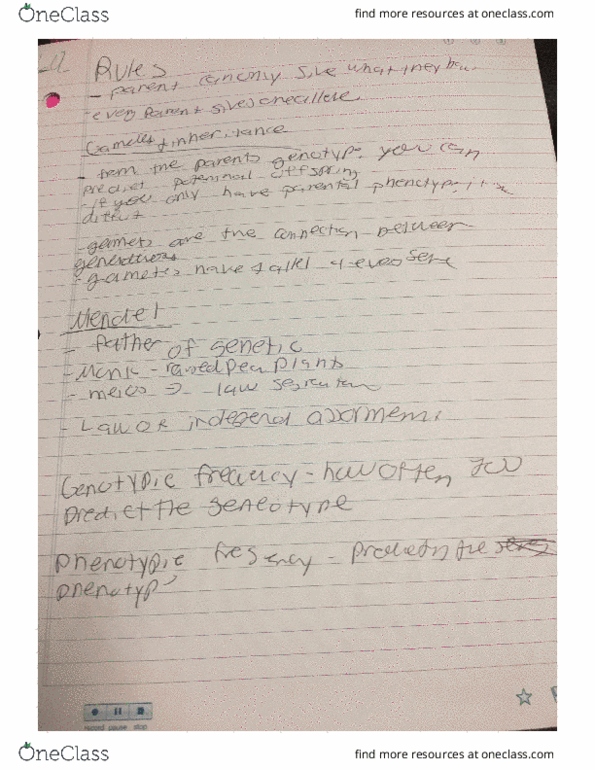 OneClass
find more resources at oneclass.com
Rules
- parent can only give what they
- every parent gives one allele
Gametes + inheritance
- from the parents genotype, you can
predict potennial offspring
- if you only have parental phenotype, its
- gamets are the connection between
generations
- gametes have 1 allel 4 every gene
Mendel
- father of genetic
- Monk - raised pea plants
- law
- Law of
Genotypic freqency - how often you
predict the geneotype
Phenotypic freqency - the
phenotyp
record pause stop
OneClass
find more resources at oneclass.com